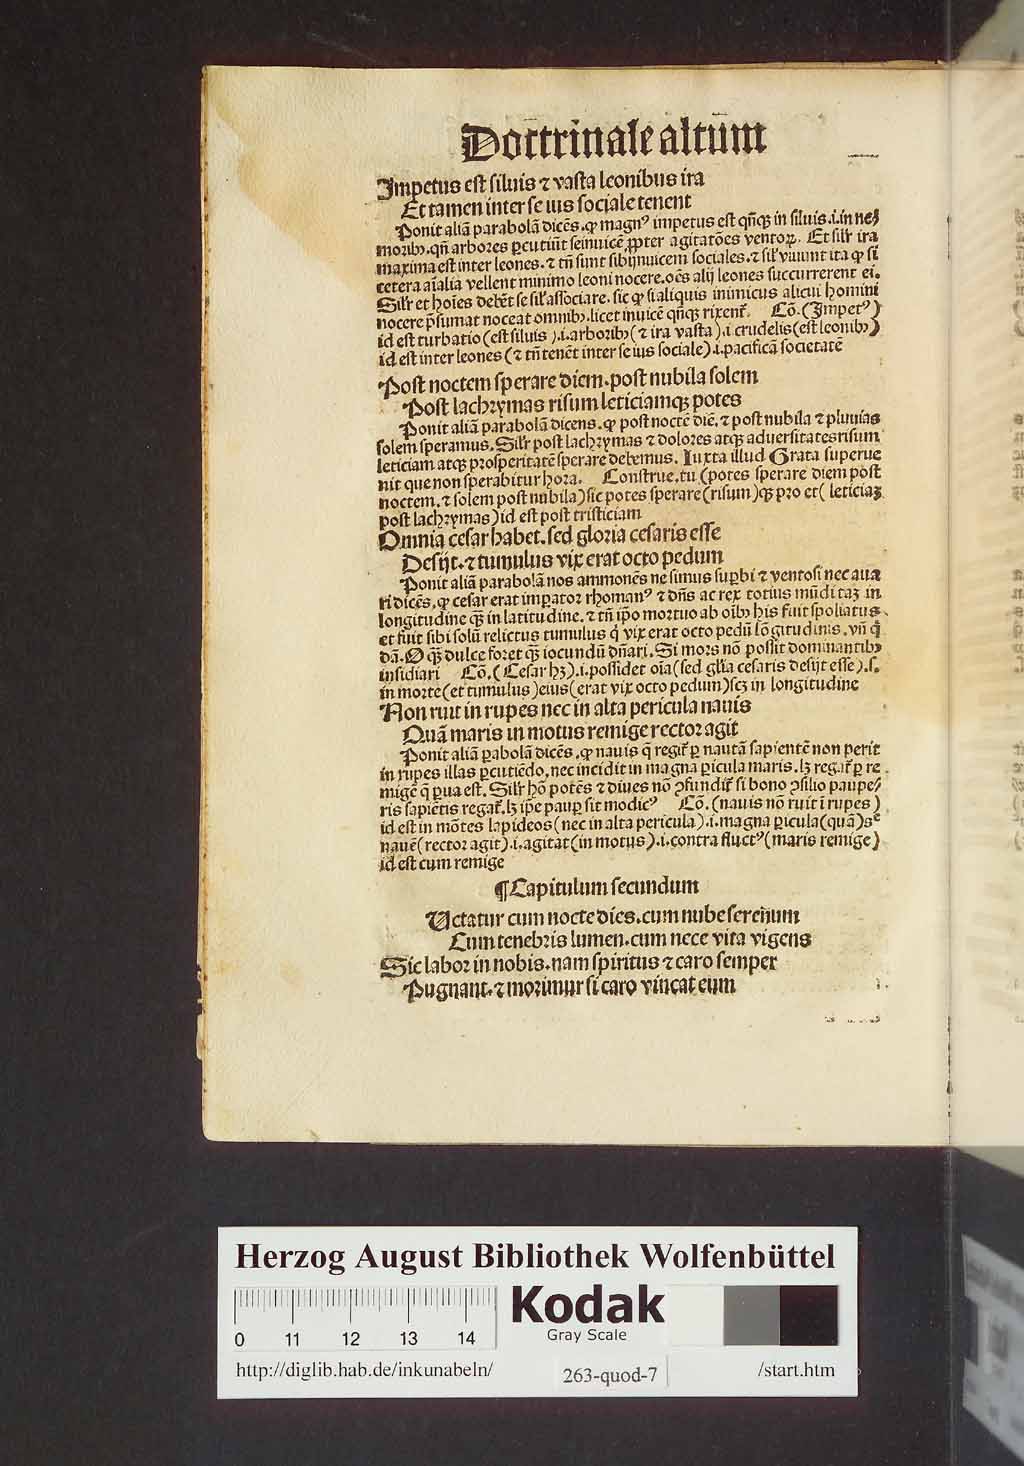 Doctrinale altum
Impetus est siluis ⁊ vasta leonibus ira
Et tamen inter se ius sociale tenent
Ponit aliā parabolā dicēs. ꝙ magnꝰ impetus est qn̄qꝫ in siluis .i. in ne⸗
moribꝫ. qn̄ arbores ꝑcutiūt seinuicē ꝓpter agitatōes ventoꝝ. Et silr̄ ira
maxima est inter leones. ⁊ tn̄ sunt sibijnuicem sociales. ⁊ silr̄ viuunt ita ꝙ si
cetera aīalia vellent minimo leoni nocere. oēs alij leones succurrerent ei.
Silr̄ et hoīes debēt se sil̄ associare. sic ꝙ si aliquis inimicus alicui homini
nocere p̄sumat noceat omnibꝫ. licet inuicē qn̄qꝫ rixent̄. Cō. (Impetꝰ)
id est turbatio (est siluis) .i. arboribꝫ (⁊ ira vasta) .i. crudelis (est leonibꝫ)
id est inter leones (⁊ tn̄ tenēt inter se ius sociale) .i. pacificā societatē
Post noctem sperare diem. post nubila solem
Post lachrymas risum leticiamqꝫ potes
Ponit aliā parabolā dicens. ꝙ post noctē diē. ⁊ post nubila ⁊ pluuias
solem speramus. Silr̄ post lachrymas ⁊ dolores atqꝫ aduersitates risum
leticiam atqꝫ prosperitatē sperare debemus. Iuxta illud Grata superue
nit que non sperabitur hora. Construe. tu (potes sperare diem post
noctem. ⁊ solem post nubila) sic potes sperare (risum) qꝫ pro et (leticiaꝫ
post lachrymas) id est post tristiciam
Omnia cesar habet. sed gloria cesaris esse
Desijt. ⁊ tumulus vix erat octo pedum
Ponit aliā parabolā nos ammonēs ne simus suꝑbi ⁊ ventosi nec aua
ri dicēs. ꝙ cesar erat imꝑator rhomanꝰ ⁊ dn̄s ac rex totius mūdi taꝫ in
longitudine qꝫ in latitudine. ⁊ tn̄ ip̄o mortuo ab oībꝫ his fuit spoliatus.
et fuit sibi solū relictus tumulus q̇ vix erat octo pedū lōgitudinis. vn̄ q̇
dā. O qꝫ dulce foret qꝫ iocundū dn̄ari. Si mors nō possit dominantibꝫ
insidiari Cō. (Cesar hꝫ) .i. possidet oīa (sed glīa cesaris desijt esse) .s.
in morte (et tumulus) eius (erat vix octo pedum) scꝫ in longitudine
Non ruit in rupes nec in alta pericula nauis
Quā maris in motus remige rector agit
Ponit aliā ꝑabolā dicēs. ꝙ nauis q̄ regit̄ ꝑ nautā sapientē non perit
in rupes illas ꝑcutiēdo. nec incidit in magna ꝑicula maris. lꝫ regat̄ ꝑ re
migē q̄ ꝑua est. Silr̄ hō potēs ⁊ diues nō ꝯfundit̄ si bono ꝯsilio paupe⸗
ris sapiētis regat̄. lꝫ ip̄e pauꝑ sit modicꝰ Cō. (nauis nō ruit ī rupes)
id est in mōtes lapideos (nec in alta pericula) .i. magna ꝑicula (quā)
nauē (rector agit) .i. agitat (in motus) .i. contra fluctꝰ (maris remige)
id est cum remige
¶ Capitulum secundum
Uctatur cum nocte dies. cum nube serenum
Cum tenebris lumen. cum nece vita vigens
Sic labor in nobis. nam spiritus ⁊ caro semper
Pugnant. ⁊ morimur si caro vincat eum
Herzog August Bibliothek Wolfenbüttel
0 11 12 13 14
Kodak
Gray Scale
http://diglib.hab.de/inkunabeln/ 263-quod-7 /start.htm